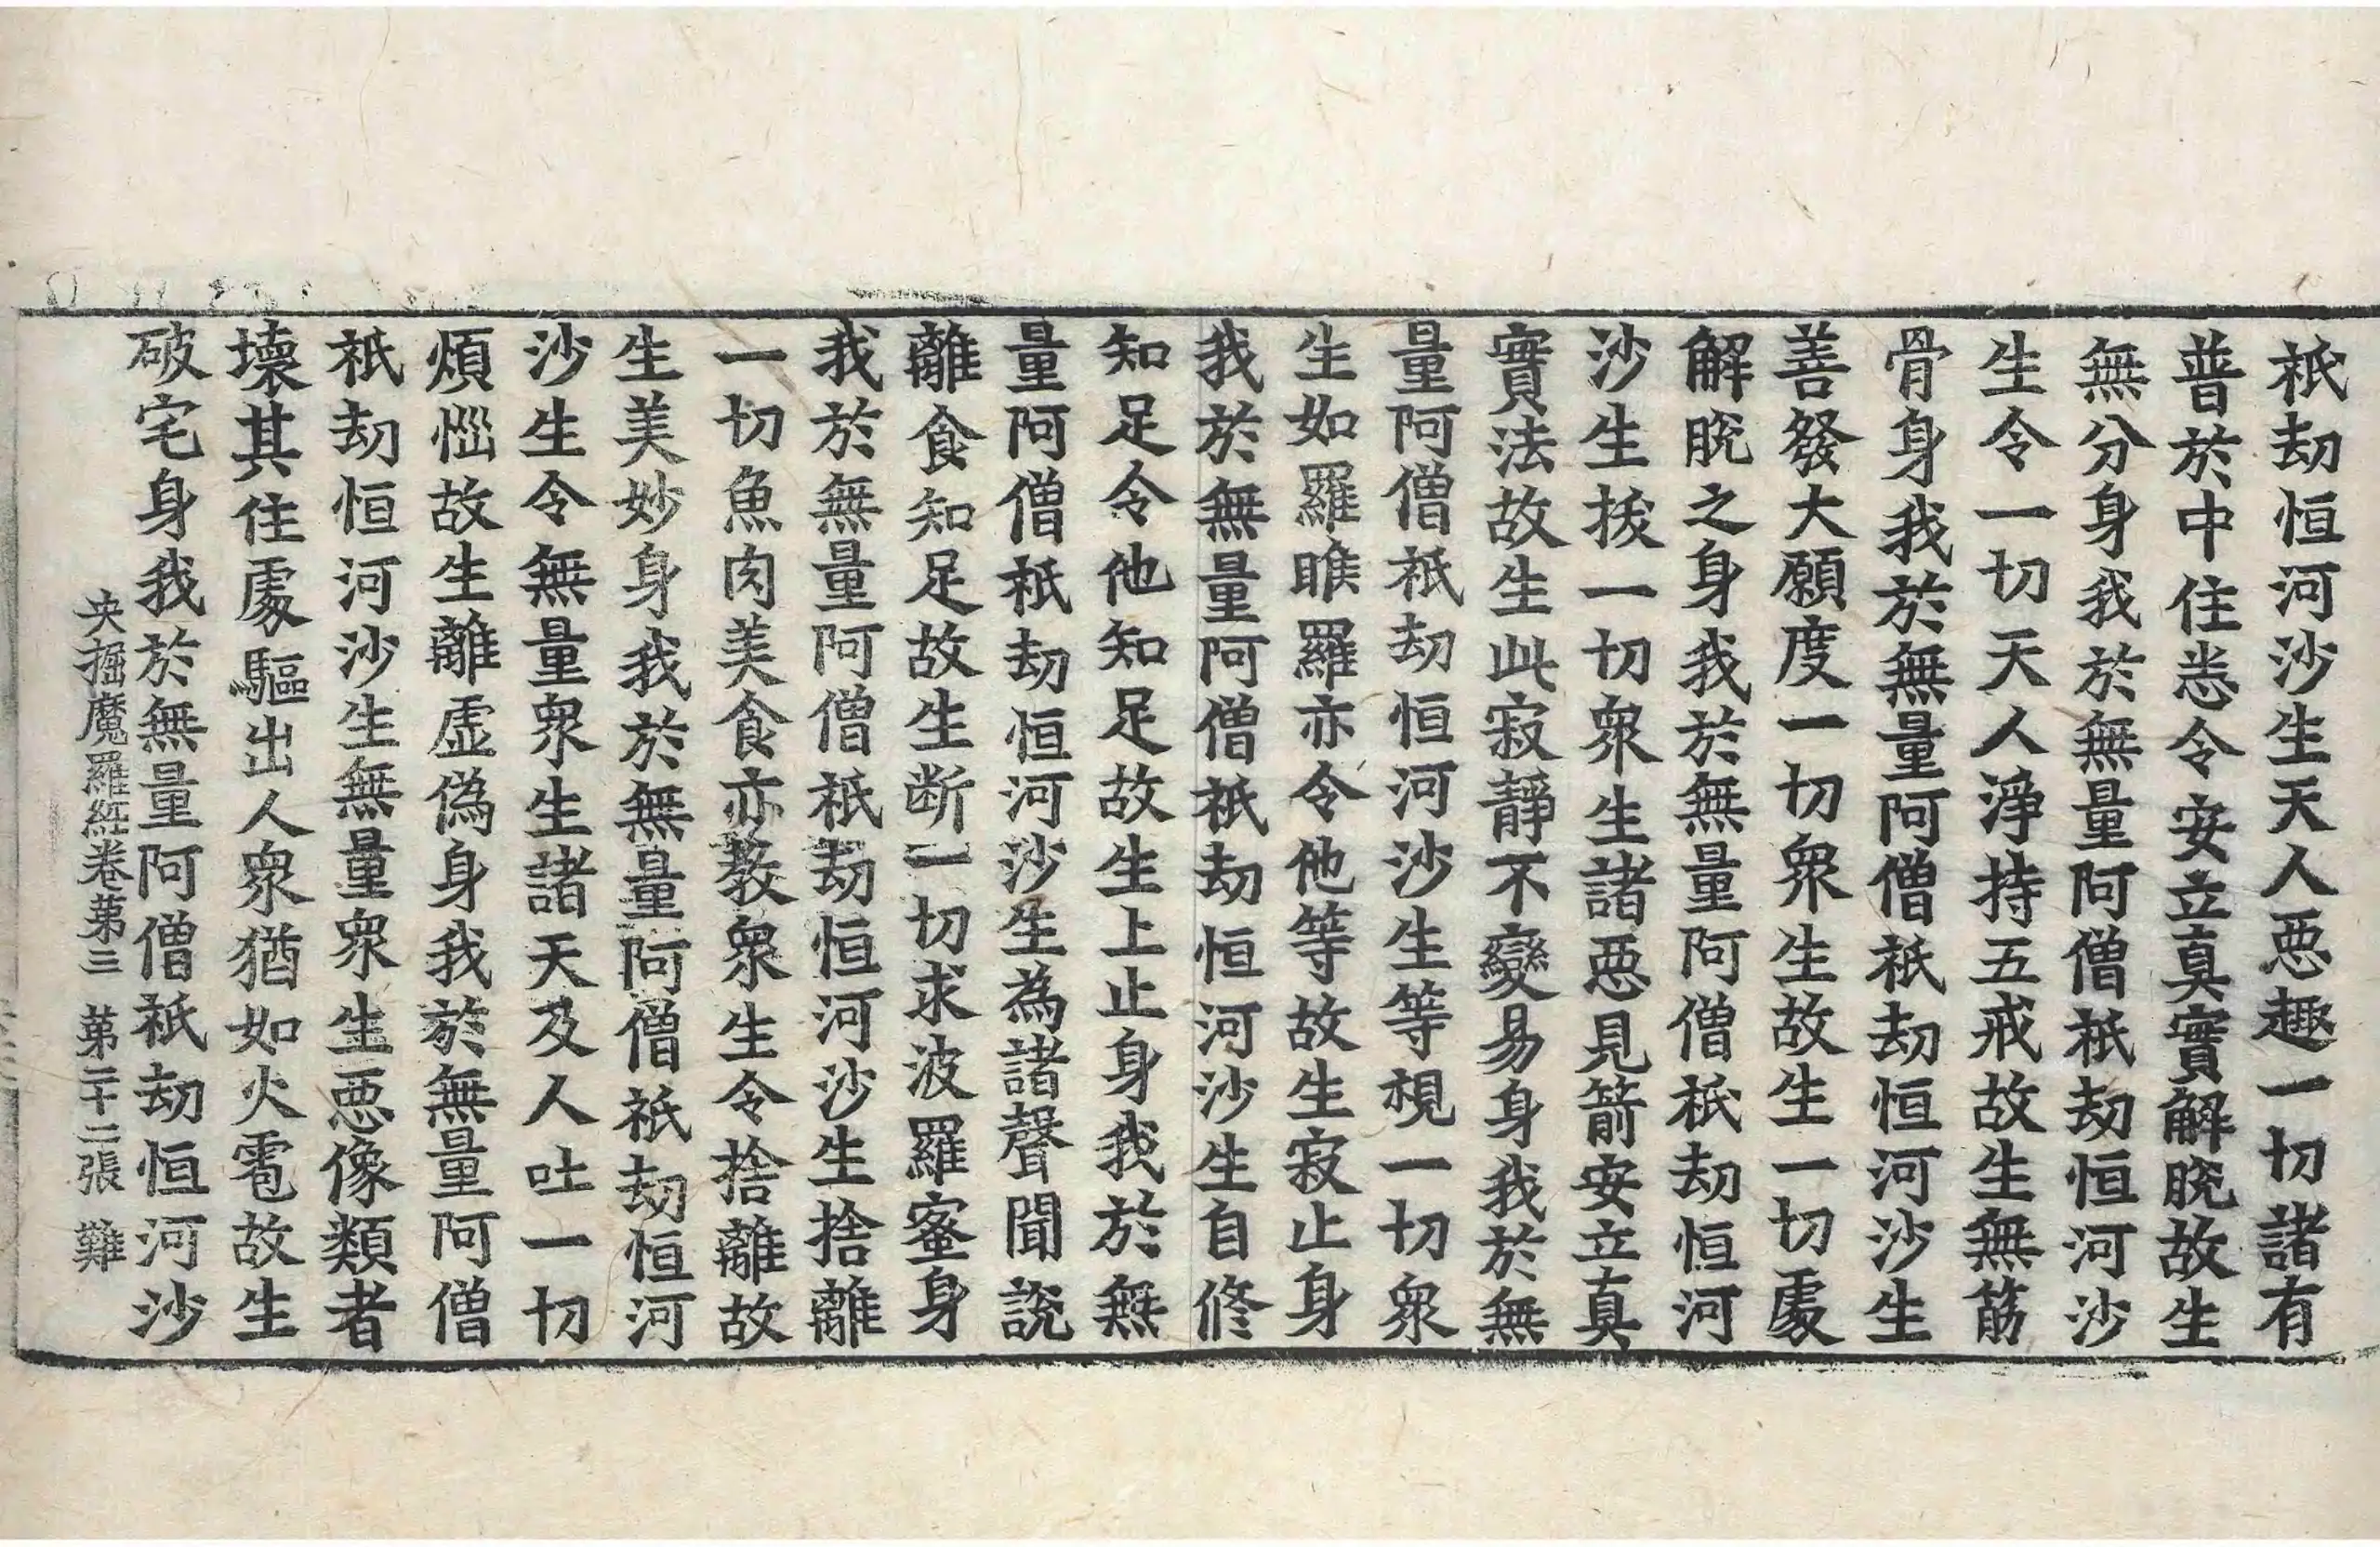 祇劫恒河沙生天人惡趣一切諸有
普於中住悉令安立真實解脫故生
無分身我於無量阿僧祇劫恒河沙
生令一切天人淨持五戒故生無筋
骨身我於無量阿僧祇劫恒河沙生
善發大願度一切衆生故生一切處
解脫之身我於無量阿僧祇劫恒河
沙生拔一切衆生諸惡見箭安立真
實法故生此寂靜不變易身我於無
量阿僧祇劫恒河沙生等視一切衆
生如羅睺羅亦令他等故生寂止身
我於無量阿僧祇劫恒河沙生自修
知足令他知足故生上止身我於無
量阿僧祇劫恒河沙生為諸聲聞說
離食知足故生断一切求波羅蜜身
我於無量阿僧祇劫恒河沙生捨離
一切魚肉美食亦教衆生令捨離故
生美妙身我於無量阿僧祇劫恒河
沙生令無量衆生諸天及人吐一切
煩惱故生離虛偽身我於無量阿僧
祇劫恒河沙生無量衆生惡像類者
壞其住處驅出人衆猶如火雹故生
破宅身我於無量阿僧祇劫恒河沙
央掘魔羅経卷第三 第二十二張 難